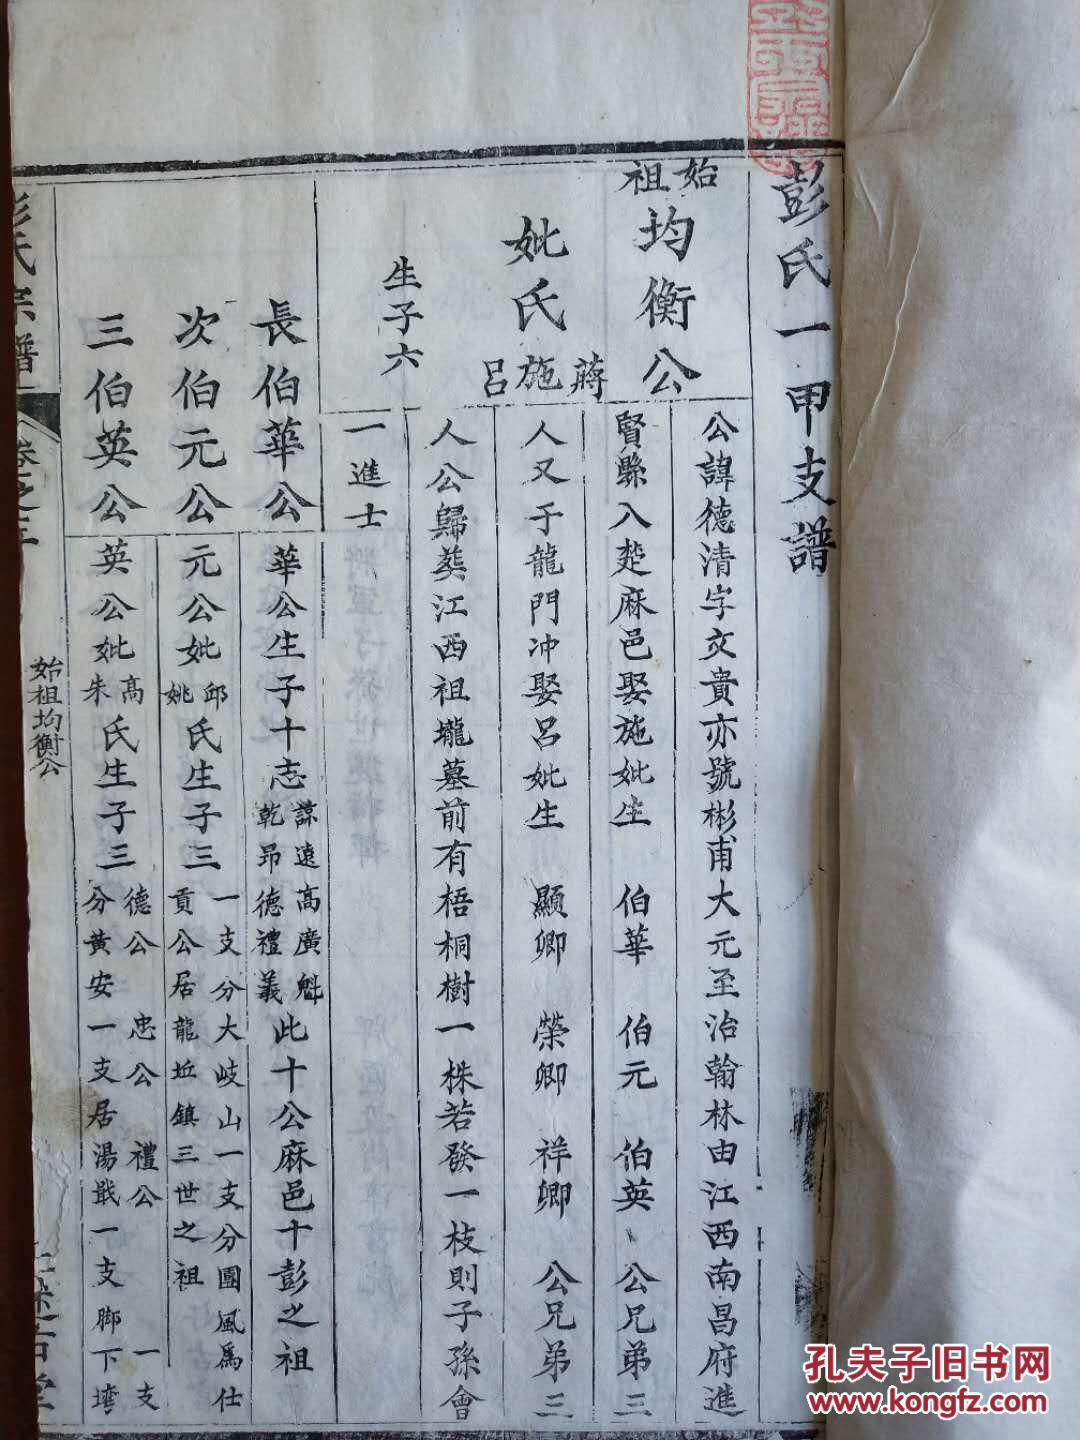 彭氏一甲支譜
始祖
均衡公
公諱德清字文貴亦號彬甫大元至治翰林由江西南昌府進
賢縣入楚麻邑娶施妣生 伯華 伯元 伯英 公兄弟三
妣氏
蔣施呂
人又于龍門冲娶呂妣生 顯卿 榮卿 祥卿 公兄弟三
人公歸葬江西祖壠墓前有梧桐樹一株若發一枝則子孫會
生子六
一進士
長伯華公
華公生子十志
諒遠高廣魁
乾昂德禮義
此十公麻邑十彭之祖
次伯元公
元公妣
邱
姚
氏生子三
一支分大岐山一支分團風為仕
貢公居龍坵鎮三世之祖
三伯英公
英公妣
高
朱
氏生子三
德公 忠公 禮公 一支
分黃安一支居湯戢一支腳下塆
彭氏宗譜
卷之
始祖均衡公
孔夫子旧书网
www.kongfz.com